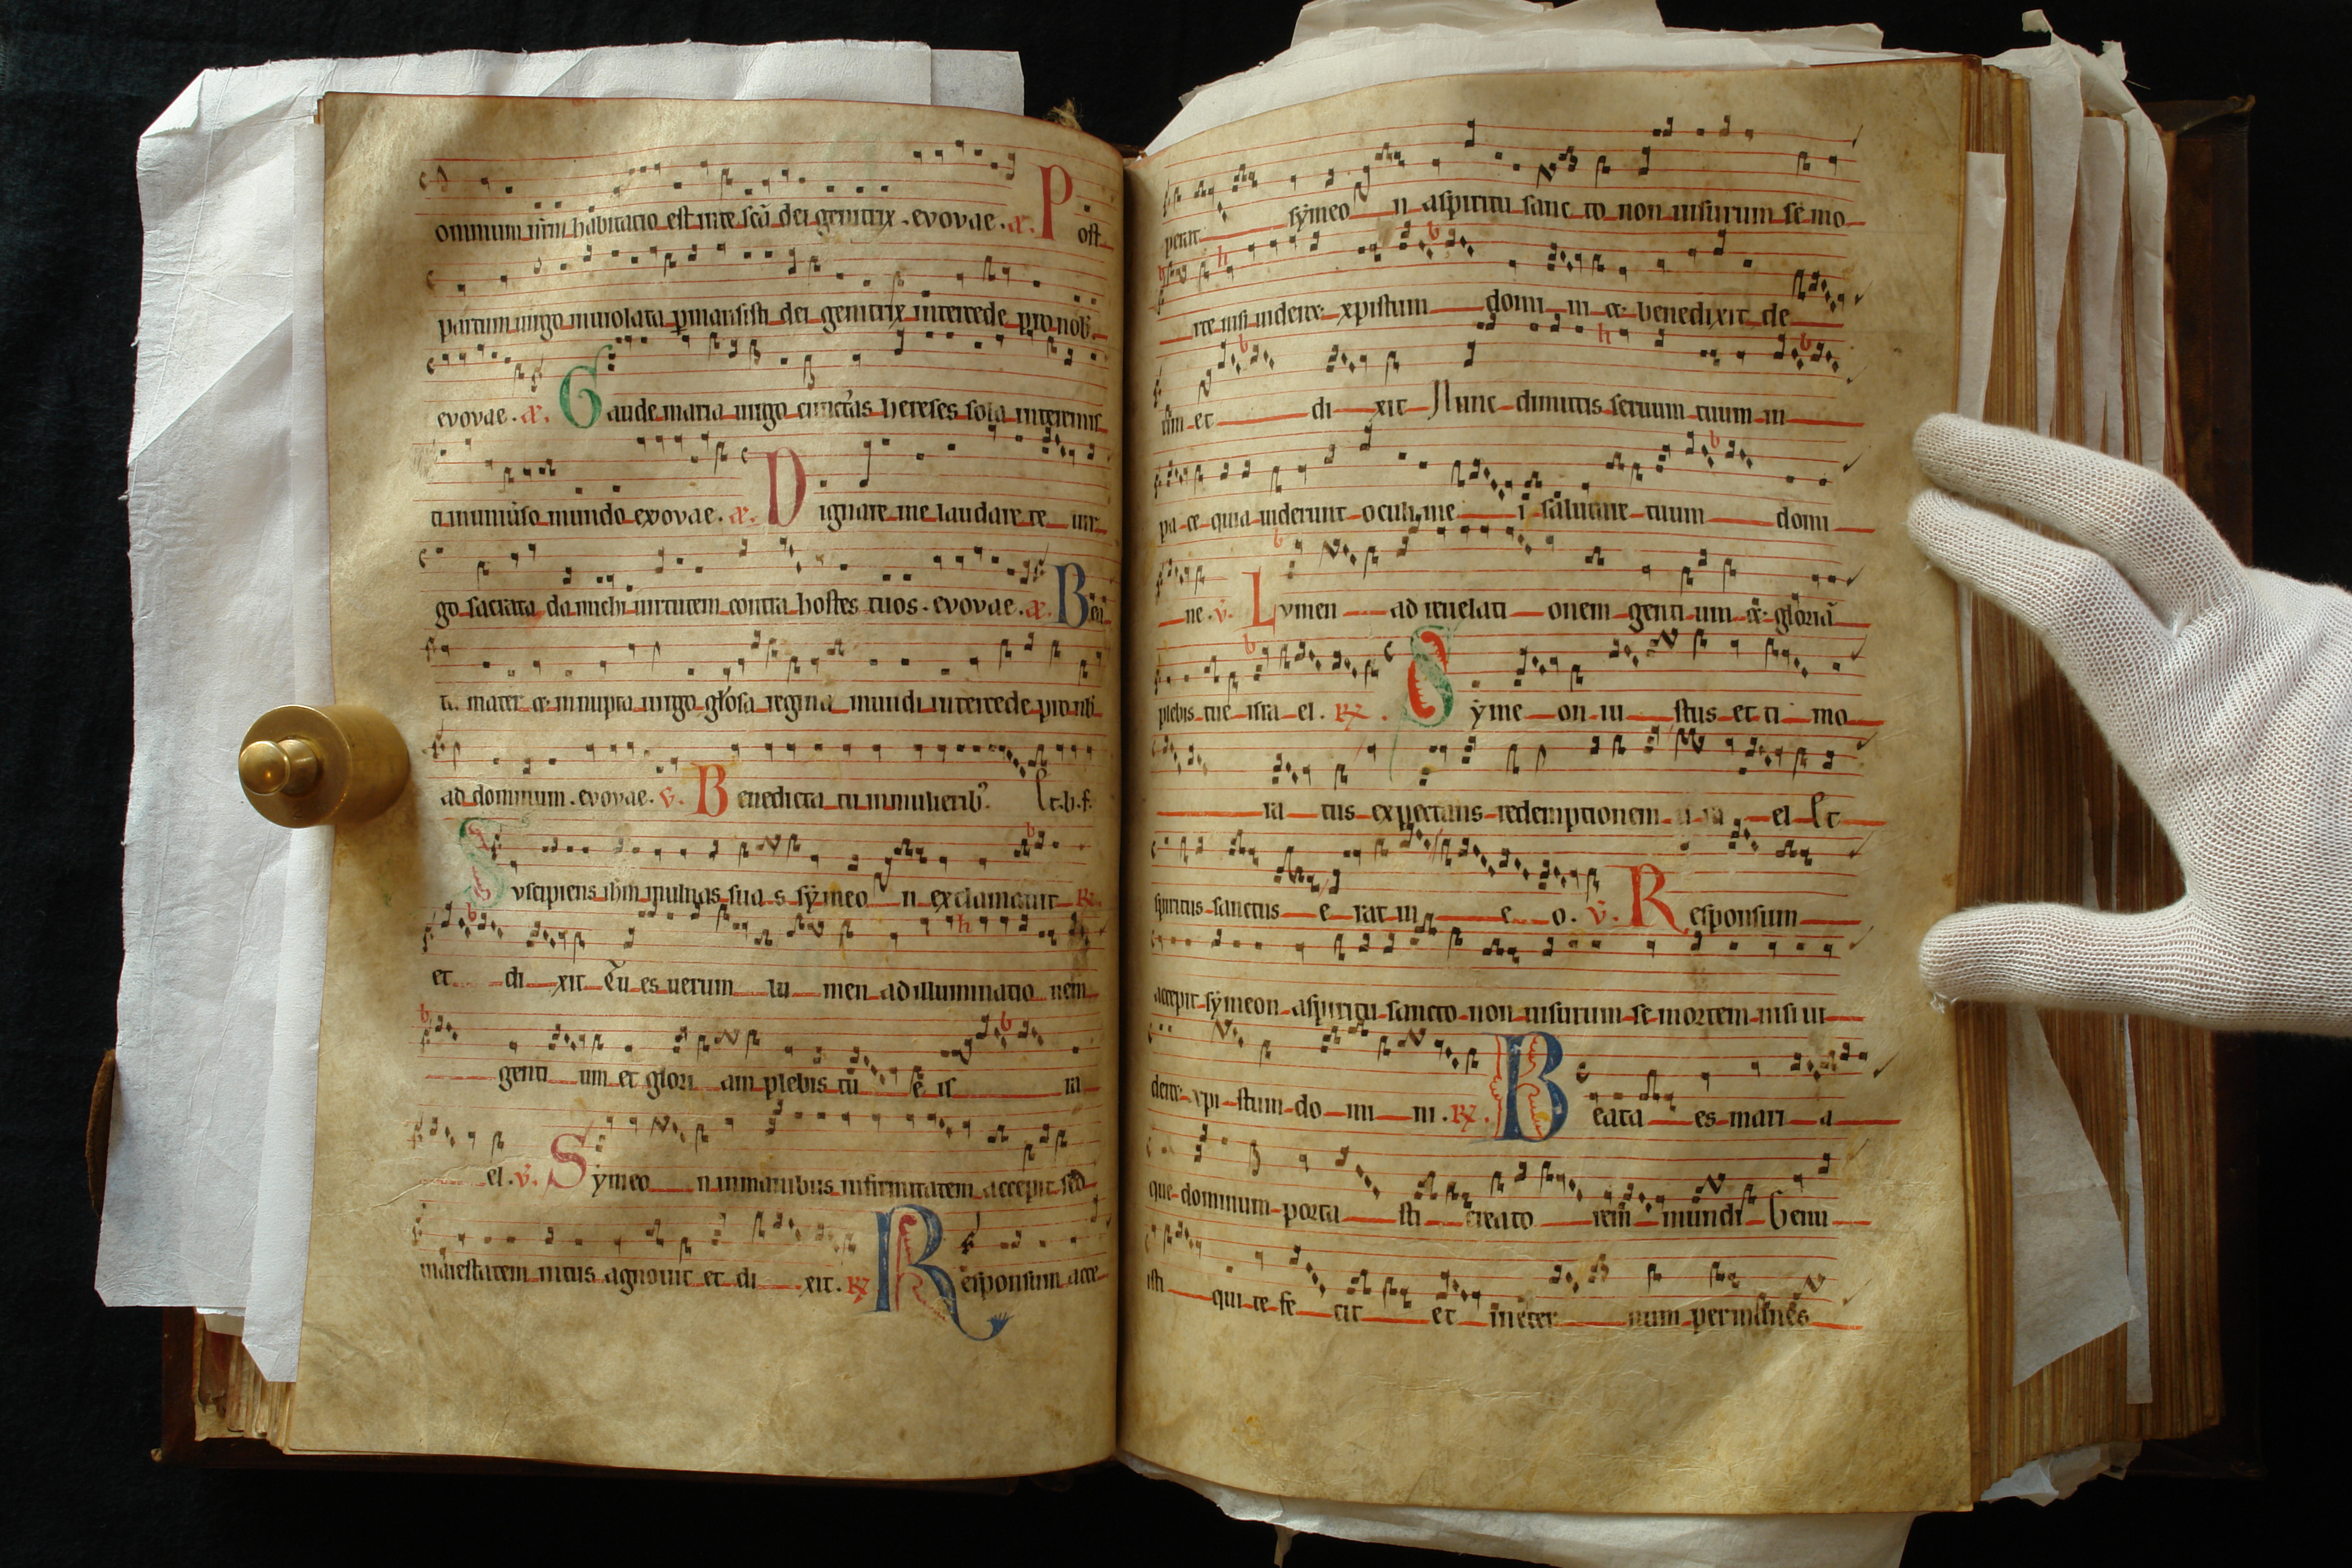 omnium nr̄m habitatio est inte scā dei genitrix . evovae . æ. Post
partum uirgo inuiolata p̄mansisti dei genitrix intercede pro nob̄.
evovae . æ. Gaude maria uirgo cunctas hereses sola interemis
ti inuniũso mundo evovae . æ. Dignare me laudare te uir
go sacrata da michi uirtutem contra hostes tuos . evovae . æ. Bea
ta mater & innupta uirgo glōsa regina mundi intercede pro nb̄
ad dominum . evovae . v. Benedicta tu inmulierib⁹. Et.b.f.
Suscipiens ihm inulnas sua s sẏmeo n exclamauit R.
et di xit Tu es uerum lu men ad illuminatio nem
genti um et glori am plebis tu e is ra
el . v̄. Sẏmeo n inmanibus infirmitatem accepit sed
maiestatem intus agnouit et di xit . R Responsum acce
perat sẏmeo n aspiritu sanc to non uisurum se mo
rte nisi uideret xpistum domi ni & benedixit de
um et di xit Nunc dimittis seruum tuum in
pa ce quia uiderunt oculi me i salutare tuum domi
ne . v̄. Lumen ad reuelati onem genti um & gloriā
plebis tue isra el . R . Sẏme on iu stus et ti mo
ra tus expectans redemptionem isra el Et
spiritus sanctus e rat in e o . v̄. Responsum
accepit sẏmeon aspiritu sancto non uisurum se mortem nisi ui
deret xpi stum do mi ni . R . Beata es mari a
que dominum porta sti creato rem mundi Genu
isti qui te fe cit et ineter num permanes